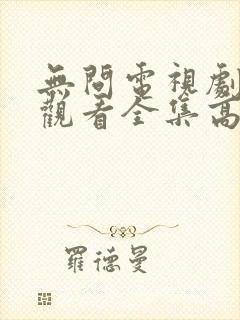 無間電視劇
觀看全集高
羅德曼